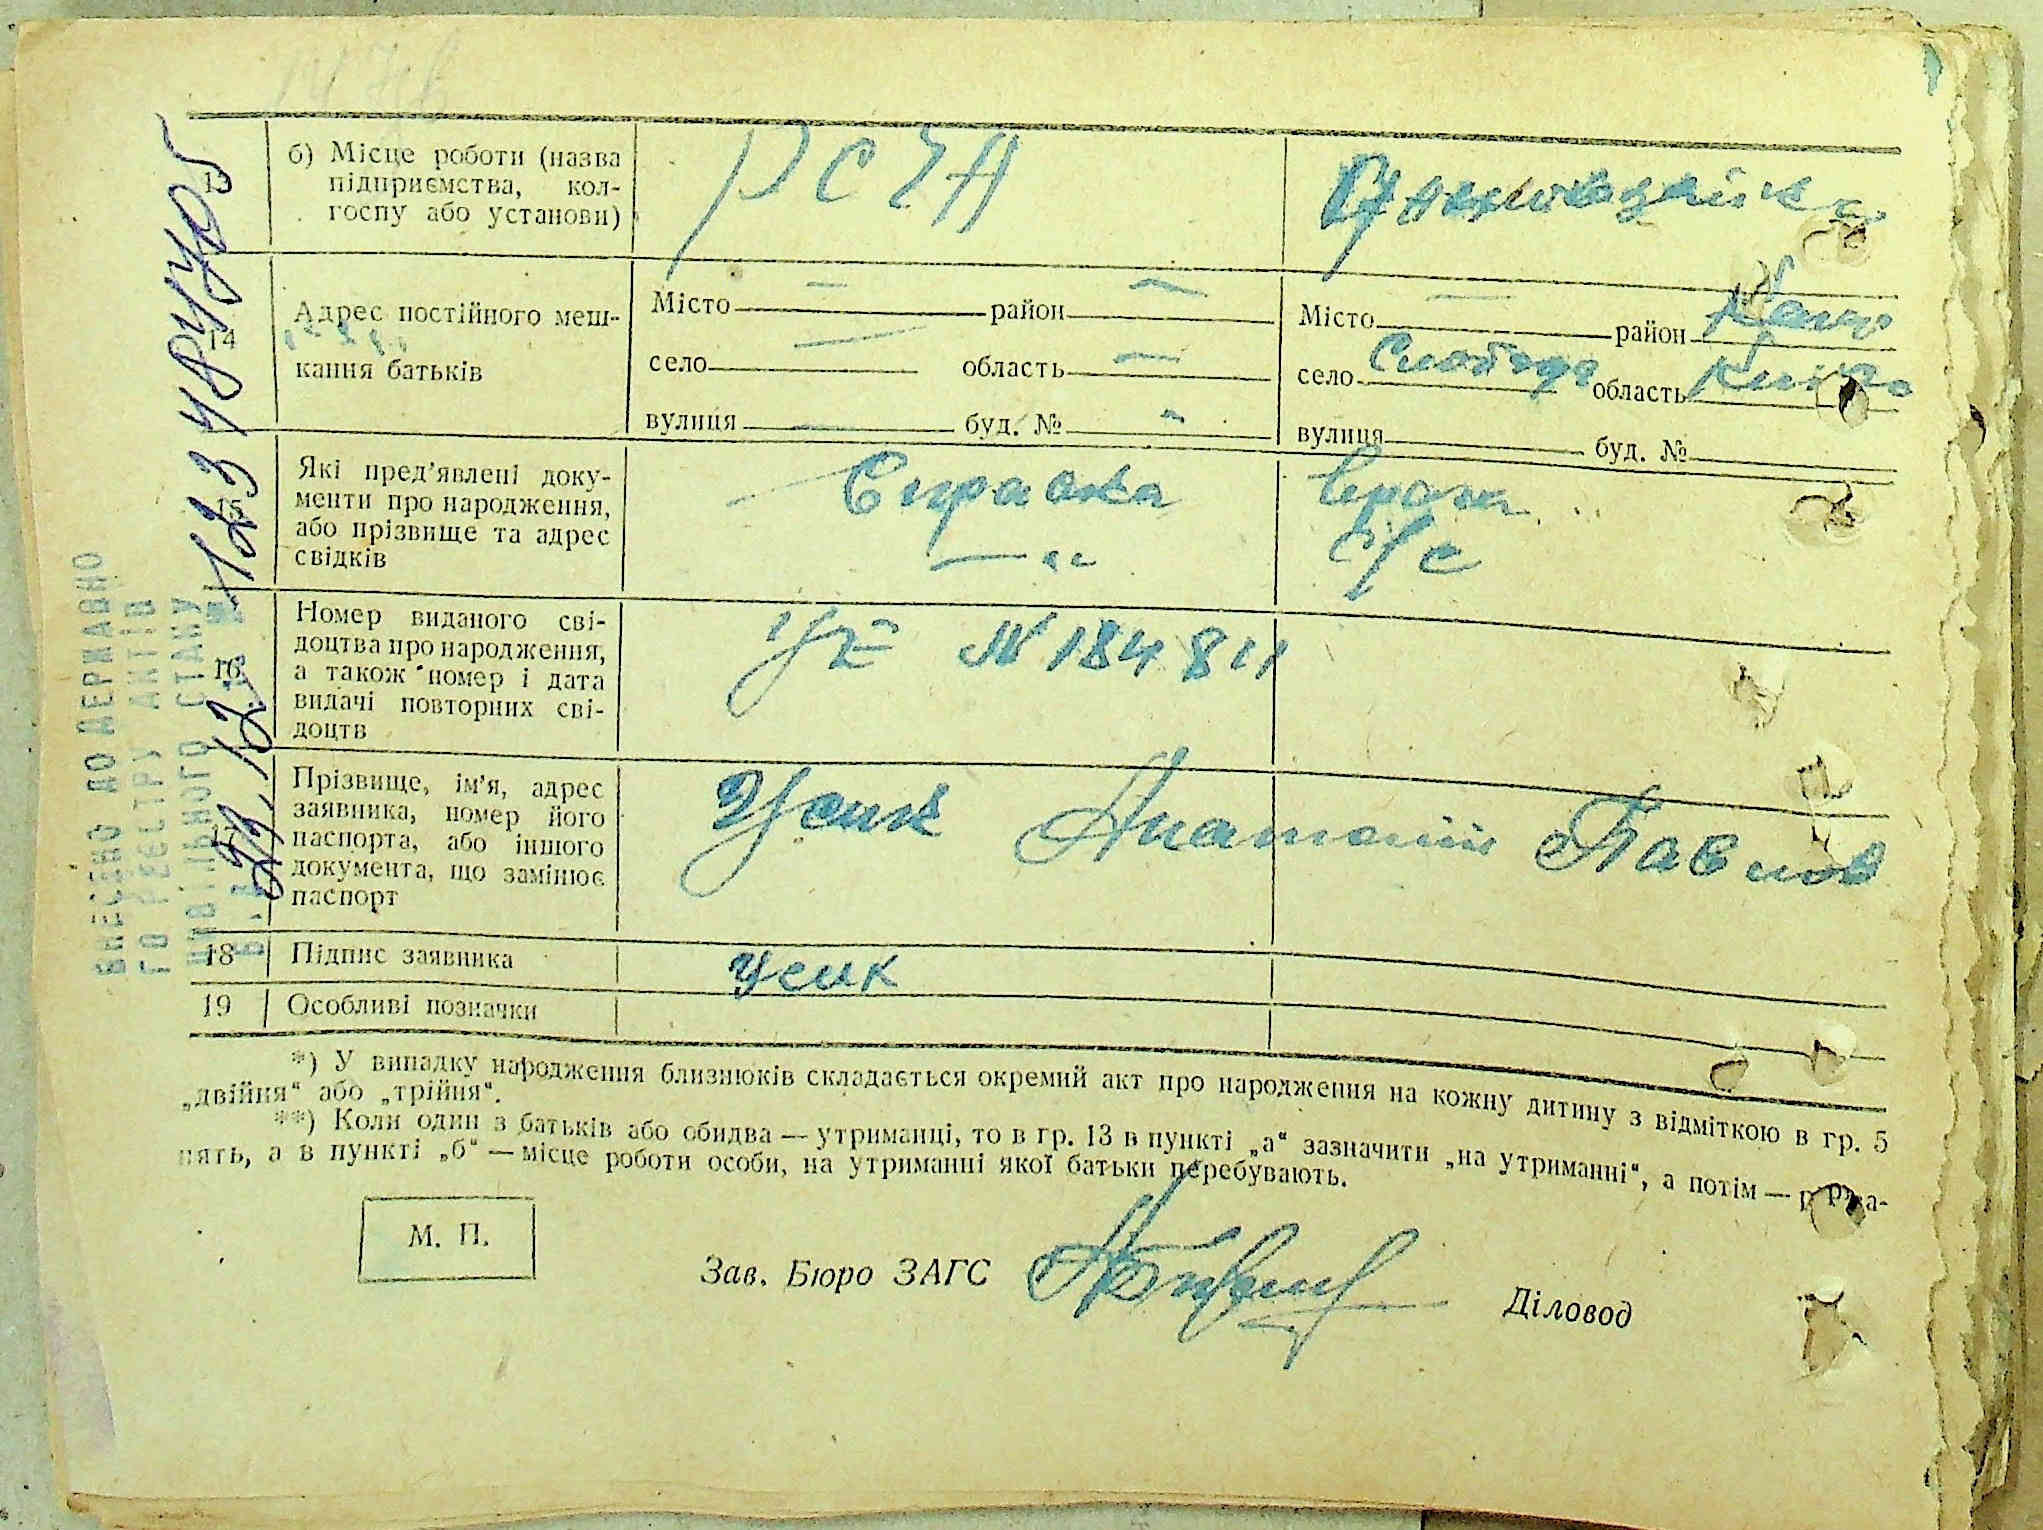 б) Місце роботи (назва
підприємства, кол-
госпу або установи)
13
14
Адрес постійного меш-
кання батьків
Місто — район —
село — область —
вулиця — буд. № "
Місто — район Кагар
село Слобода область Київс
вулиця буд. №
15
Які пред’явлені доку-
менти про народження,
або прізвище та адрес
свідків
Справка
— "
с/с
16
Номер виданого сві-
доцтва про народження,
а також номер і дата
видачі повторних сві-
доцтв
№ 184811
17
Прізвище, ім’я, адрес
заявника, номер його
паспорта, або іншого
документа, що замінює
паспорт
Усик Анатолій Павлов
18 Підпис заявника
Усик
19 Особливі позначки
*) У випадку народження близнюків складається окремий акт про народження на кожну дитину з відміткою в гр. 5
„двійня“ або „трійня“.
**) Коли один з батьків або обидва — утриманці, то в гр. 13 в пункті „а“ зазначити „на утриманні“, а потім —
нять, а в пункті „б“ — місце роботи особи, на утриманні якої батьки перебувають.
М. П.
Зав. Бюро ЗАГС
Діловод
ВНЕСЕНО ДО ДЕРЖАВНО
ГО РЕЄСТРУ АКТІВ
ЦИВІЛЬНОГО СТАНУ